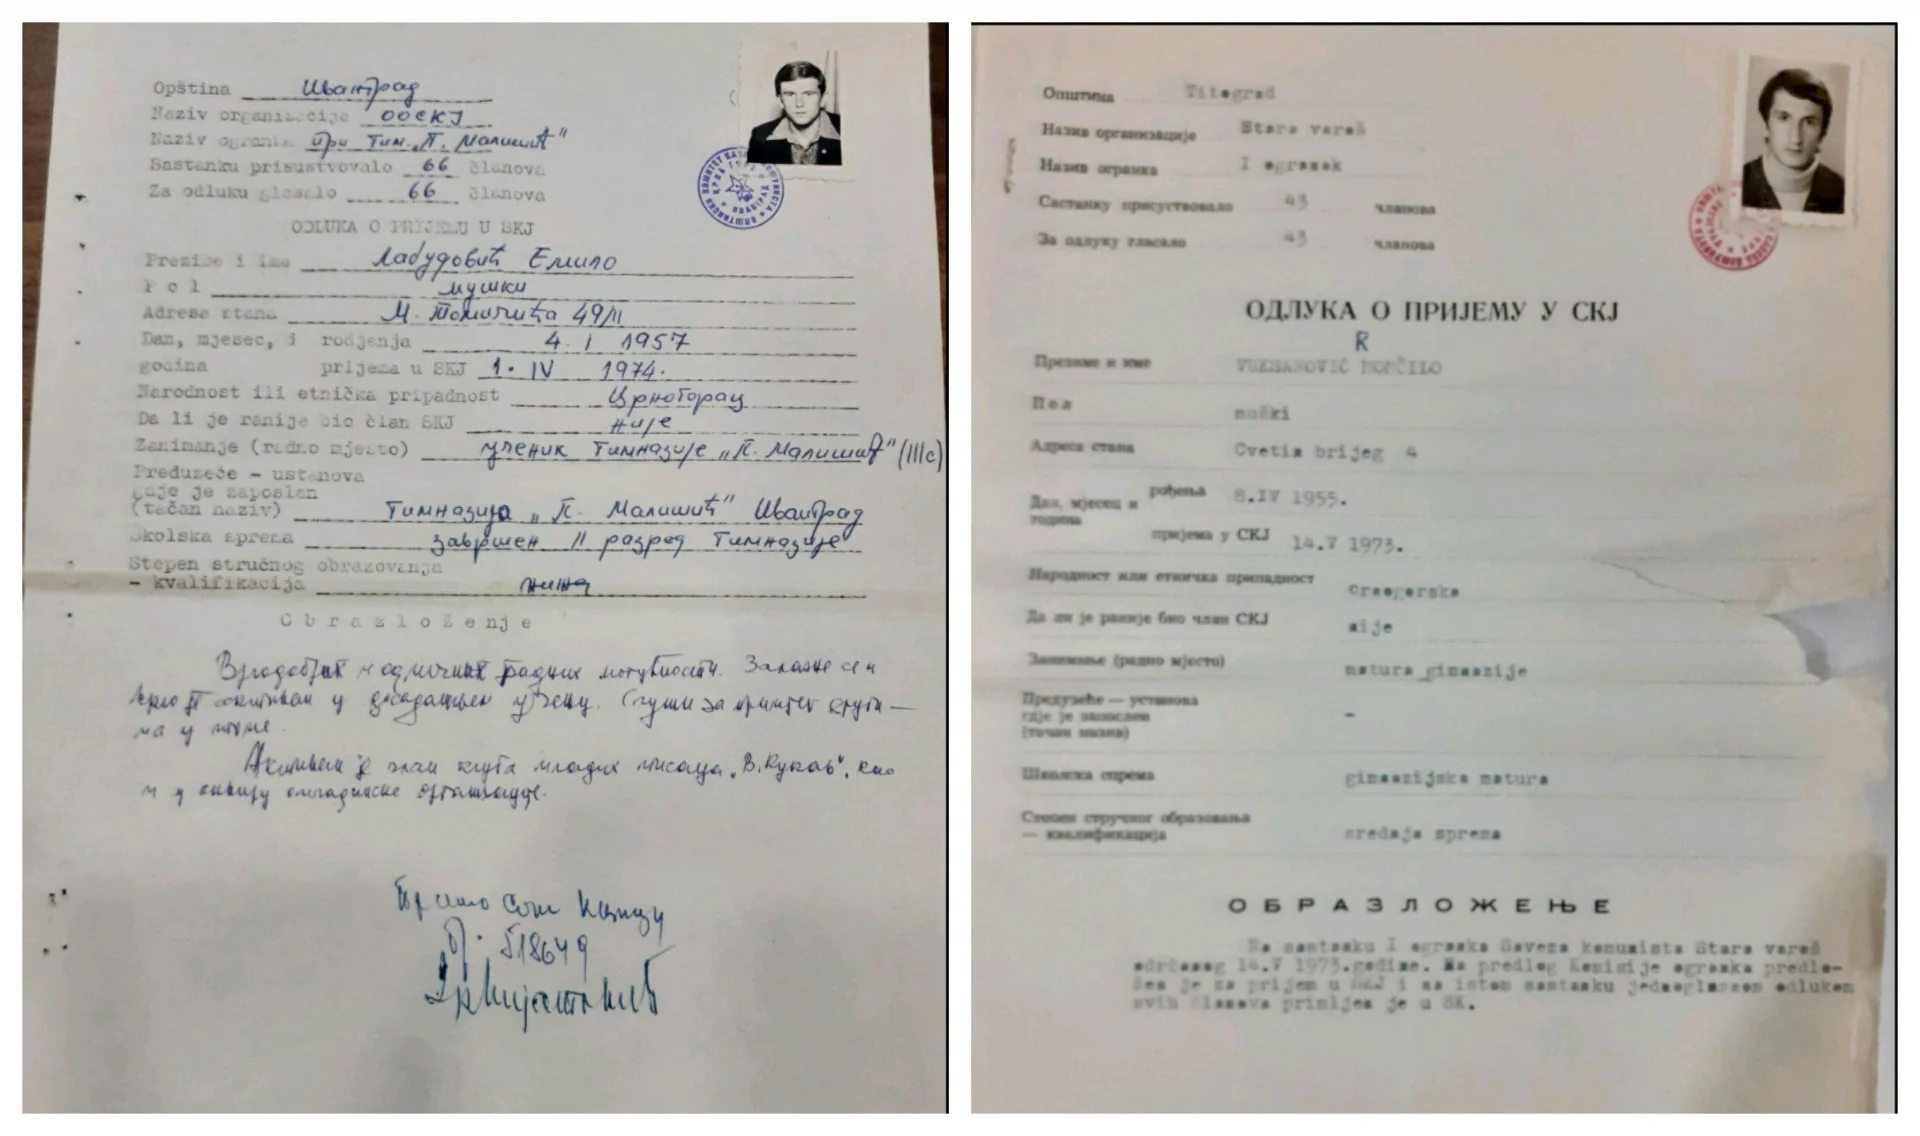 Opština Иванград
Naziv organizacije ООСКЈ
Naziv ogranka при Гим. „П. Малишић"
Sastanku prisustvovalo 66 članova
Za odluku glasalo 66 članova
ODLUKA O PRIJEMU U SKJ
Prezime i ime Лабудовић Емило
Pol мушки
Adresa stana М. Томичића 49/II
Dan, mjesec, i rodjenja 4. I 1957
godina prijema u SKJ 1. IV 1974.
Narodnost ili etnička pripadnost Црногорац
Da li je ranije bio član SKJ није
Zanimanje (radno mjesto) ученик Гимназије „П. Малишић" (IIIc)
Preduzeće - ustanova
gdje je zaposlan
(tačan naziv) Гимназија „П. Малишић" Иванград
Školska sprema завршен II разред Гимназије
Stepen stručnog obrazovanja
- kvalifikacija
Obrazloženje
радних могућности. Залаже се и
у досадашњем
у
је члан клуба младих писаца „В.
и у оквиру омладинске организације.
518649
Општина Titograd
Назив организације Stara varoš
Назив огранка I ogranak
Састанку присуствовало 43 чланова
За одлуку гласало 43 чланова
ОДЛУКА О ПРИЈЕМУ У СКЈ
R
Презиме и име VUKSANOVIĆ MOMČILO
Пол muški
Адреса стана Cvetin brijeg 4
Дан, мјесец и рођења 8.IV 1955.
година
пријема у СКЈ 14.V 1973.
Народност или етничка припадност crnogorska
Да ли је раније био члан СКЈ nije
Занимање (радно мјесто) matura gimnazije
Предузеће — установа
гдје је запослен -
(тачан назив)
Школска спрема gimnazijska matura
Степен стручног образовања
— квалификација srednja sprema
ОБРАЗЛОЖЕЊЕ
Na sastanku I ogranka Saveza komunista Stara varoš
održanog 14.V 1973.godine. Na predlog Komisije ogranka predlo-
žen je za prijem u SKJ i na istom sastanku jednoglasnom odlukom
svih članova primljen je u SK.